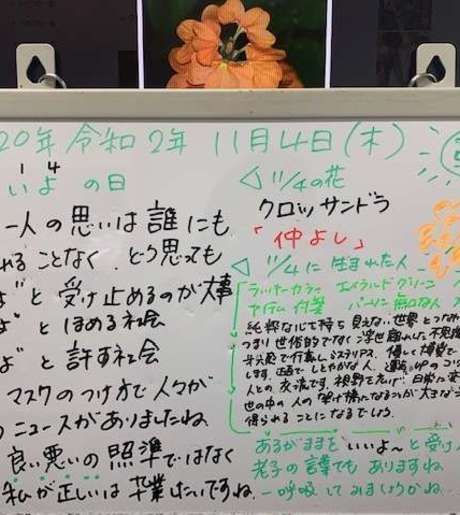 20年 令和2年 11月4日(木)
1 4
いよ の日
一人の思いは誰にも
れることなく、どう思っても
よ"と受け止めるのが大事
よ"とほめる社会
よ"と許す社会
マスクのつけ方で人々が
のニュースがありましたね
良い悪いの照準ではなく
私が正しいは卒業したいですね
◁ 11/4の花
クロッサンドラ
「仲よし」
◁ 11/4に生まれた人
ラッキーカラー エメラルドグリーン
付箋
純粋な心を持ち見えない世界と
つまり世俗的でなく浮世離れした不思議
します。しとやかな人、運気UPのコツ
人との交流です。視野を広げ、日常に変
世の中の人の架け橋になるのが大きな
得られることになるでしょう。
あるがままを"いいよ〜と受け
老子の言葉でもありますね
一呼吸してみましょうかね